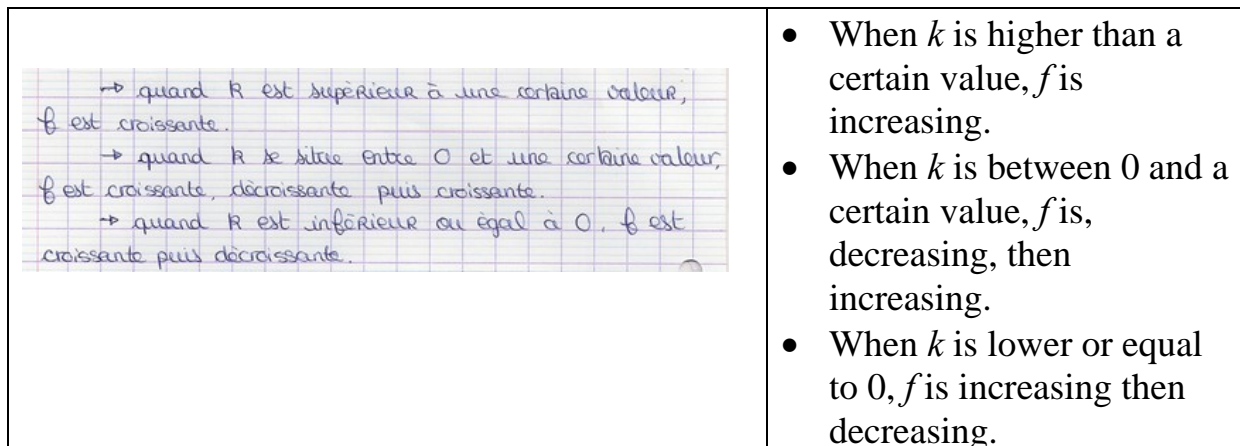 → quand k est supérieur à une certaine valeur,
f est croissante.
→ quand k se situe entre 0 et une certaine valeur,
f est croissante, décroissante puis croissante.
→ quand k est inférieur ou égal à 0, f est
croissante puis décroissante.
• When k is higher than a
certain value, f is
increasing.
• When k is between 0 and a
certain value, f is,
decreasing, then
increasing.
• When k is lower or equal
to 0, f is increasing then
decreasing.